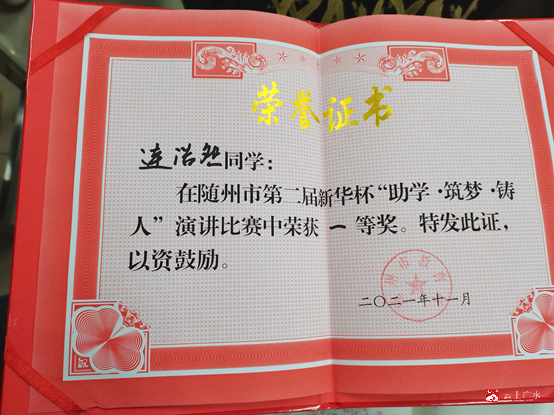 荣誉证书
连浩然同学：
在随州市第二届新华杯“助学·筑梦·铸
人”演讲比赛中荣获一等奖。特发此证，
以资鼓励。
二〇二一年十一月
云上广水